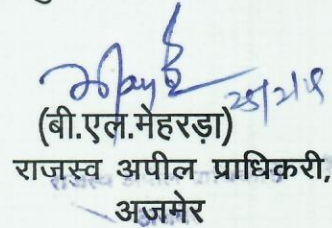 25/2/19
(बी.एल.मेहरड़ा)
राजस्व अपील प्राधिकरी,
अजमेर